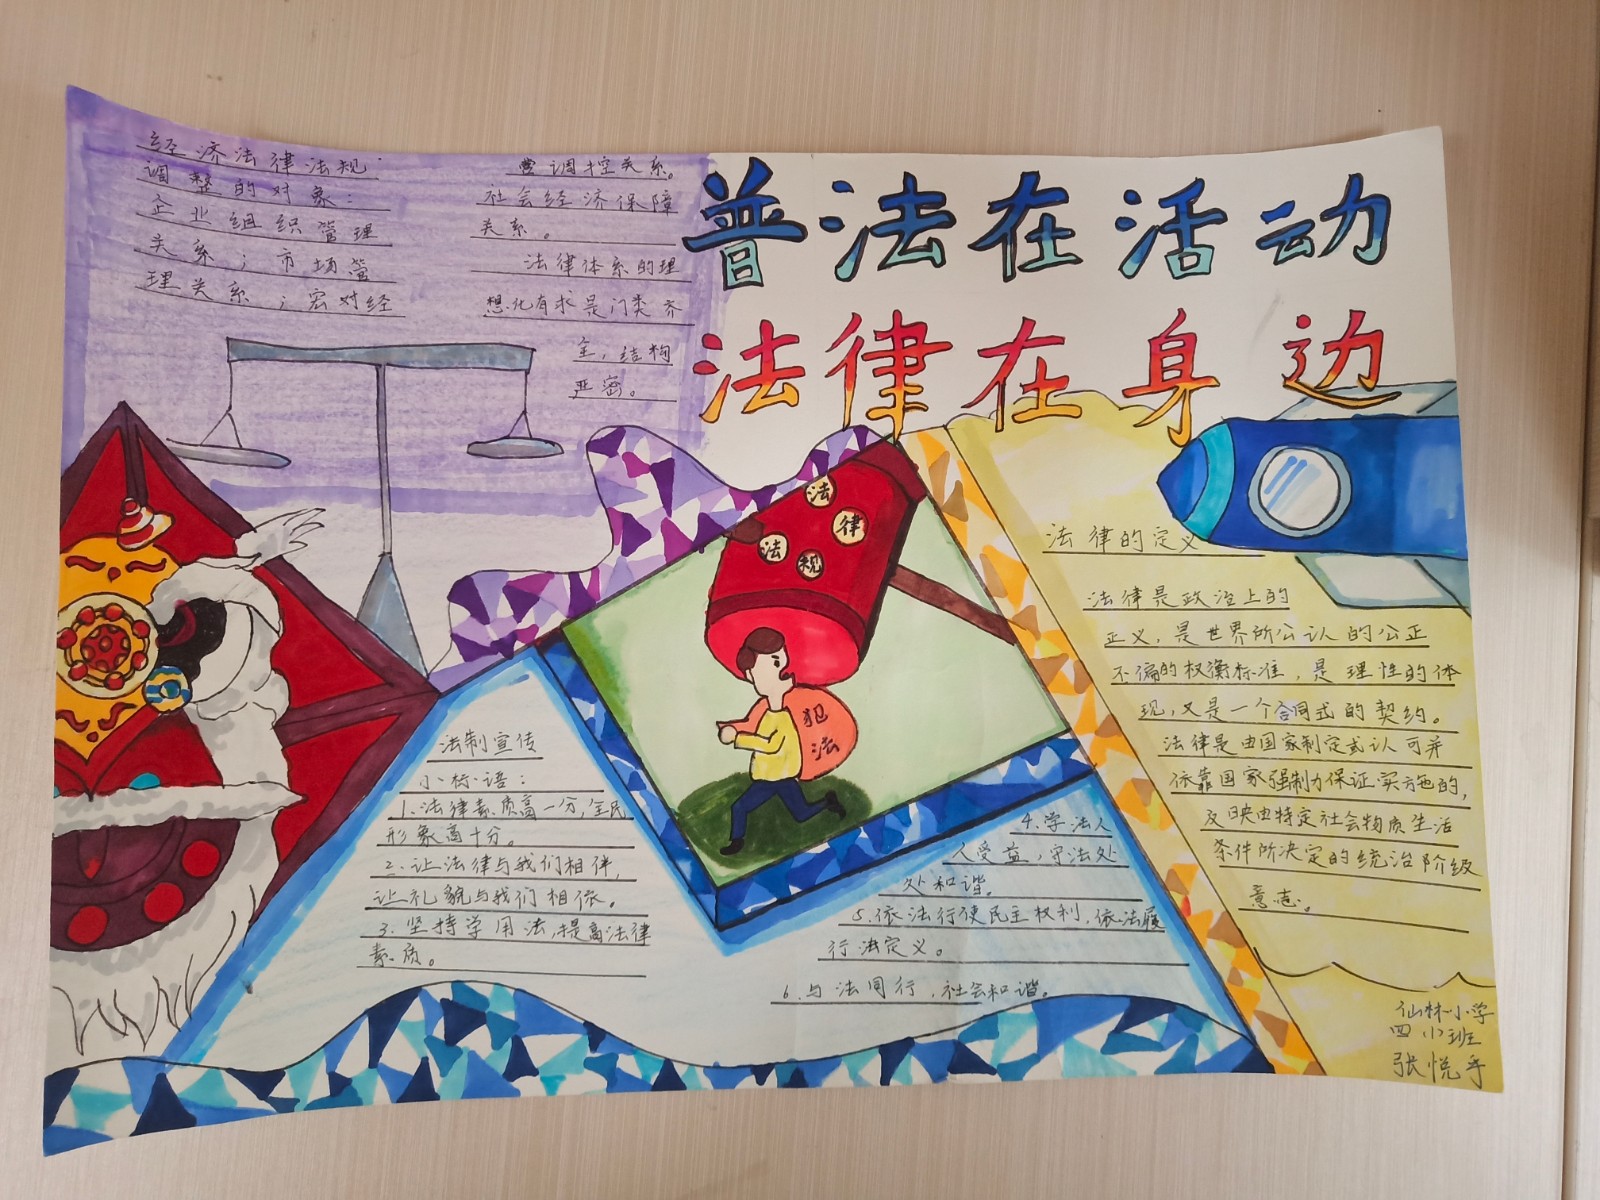 普法在活动
法律在身边
经济法律法规
调整的对象：
企业组织管理
关系；市场管
理关系；宏对经
营调控关系。
社会经济保障
关系。
法律体系的理
想化有求是门类齐
全，结构
严密。
法律
法规
犯
法
法制宣传
小标语：
1.法律素质高一分，全民
形象高十分。
2.让法律与我们相伴，
让礼貌与我们相依。
3.坚持学用法，提高法律
素质。
4.学法人
人受益，守法处
处和谐。
5.依法行使民主权利，依法履
行法定义。
6.与法同行，社会和谐。
法律的定义
法律是政治上的
正义，是世界所公认的公正
不偏的权衡标准，是理性的体
现，又是一个合同式的契约。
法律是由国家制定式认可并
依靠国家强制力保证实施的，
反映由特定社会物质生活
条件所决定的统治阶级
意志。
仙林小学
班
张悦